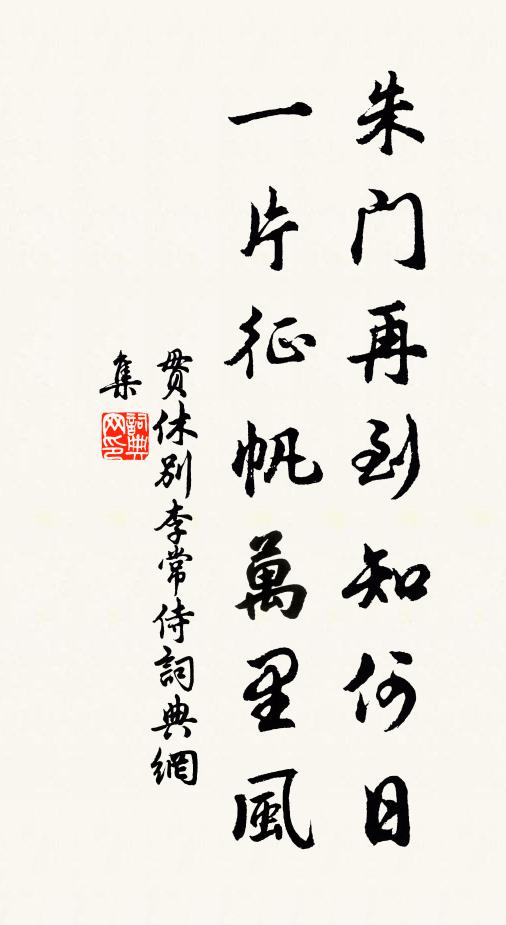 朱門再到知何日
一片征帆萬里風
貫休別李常侍詞典網
集
詞典
网印